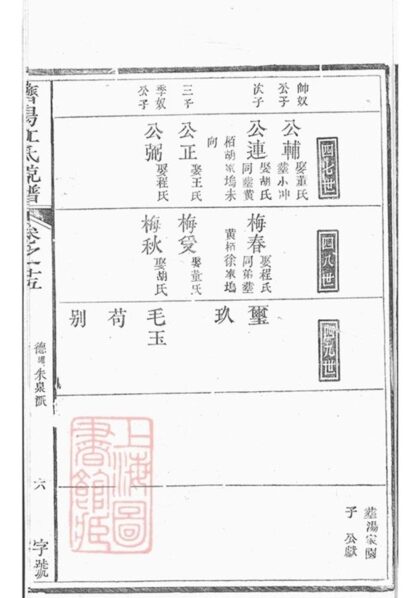 葬湯家園
子公獻
四七世
四八世
四九世
帥奴公子
公輔 娶董氏 葬小冲
次子
公連 娶胡氏 同葬黄栢胡家塢未向
梅春 娶程氏 同弟葬黄栢徐家塢
璽
玖
三子
公正 娶王氏
梅受 娶董氏
季奴公子
公弼 娶程氏
梅秋 娶胡氏
毛玉
苟
别
濟陽江氏統譜 卷之十五 朱泉派 六 字號
上海圖書館藏